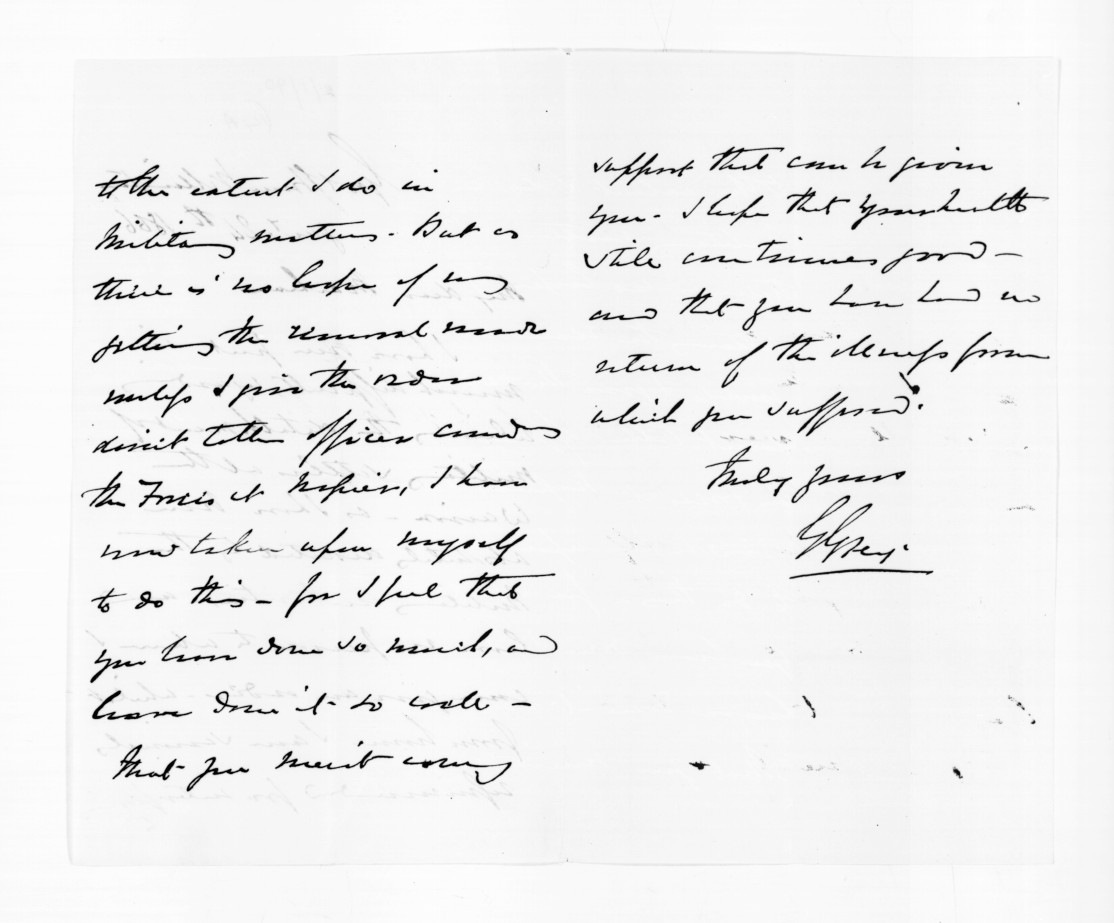 to the extent I do in
Military matters - But as
there is no hope of my
getting the removal made
unless I give the order
direct to the officer comdg
the Forces at Napier, I have
now taken upon myself
to do this - for I feel that
you have done so much, and
have done it so well -
that you merit every
support that can be given
you - I hope that your health
still continues good -
and that you have had no
return of the illness from
which you suffered.
Truly yours
G Grey